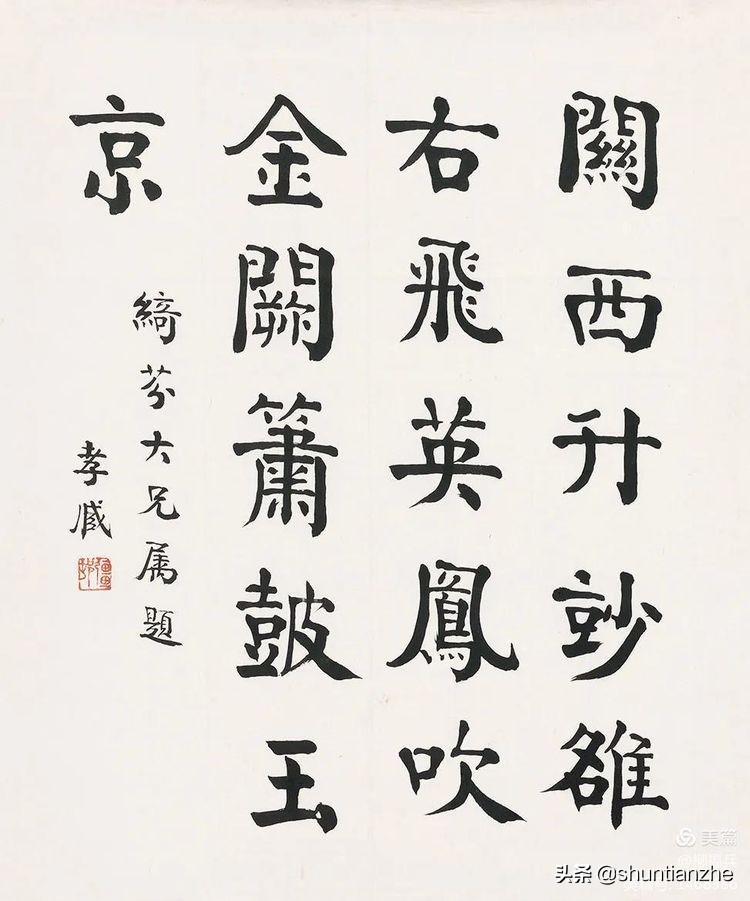 關西升竗雒
右飛英鳳吹
金闕簫皷玉
京
綺芬大兄属題
孝臧
美篇
头条 @shuntianzhe